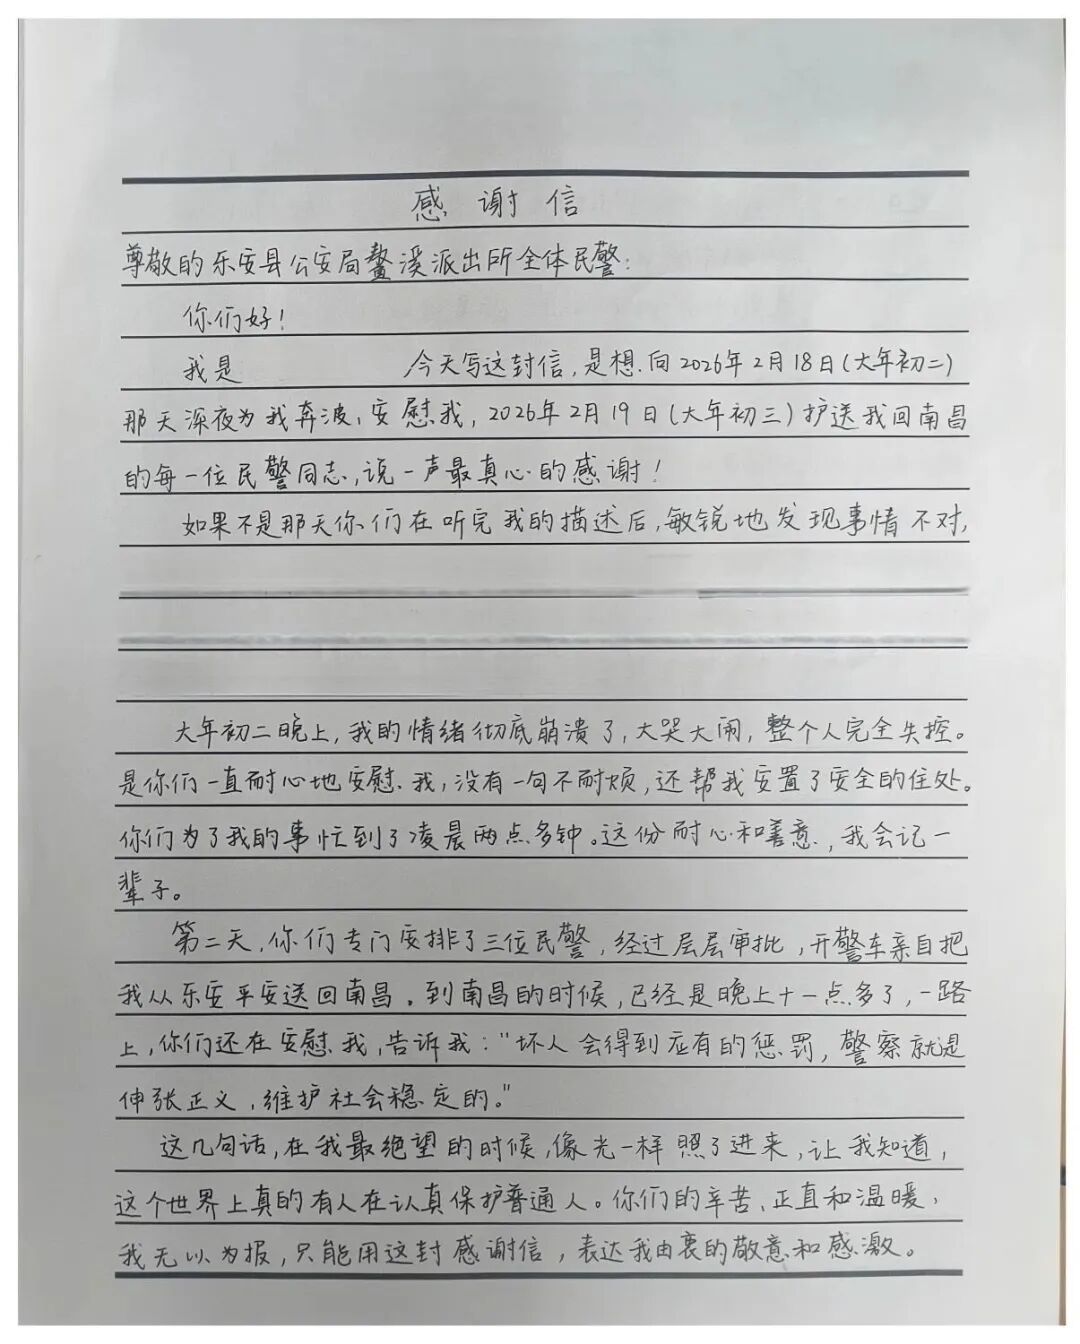 感谢信
尊敬的乐安县公安局鳌溪派出所全体民警：
你们好！
我是 今天写这封信，是想向2026年2月18日（大年初二）
那天深夜为我奔波，安慰我，2026年2月19日（大年初三）护送我回南昌
的每一位民警同志，说一声最真心的感谢！
如果不是那天你们在听完我的描述后，敏锐地发现事情不对，
大年初二晚上，我的情绪彻底崩溃了，大哭大闹，整个人完全失控。
是你们一直耐心地安慰我，没有一句不耐烦，还帮我安置了安全的住处。
你们为了我的事忙到了凌晨两点多钟。这份耐心和善意，我会记一
辈子。
第二天，你们专门安排了三位民警，经过层层审批，开警车亲自把
我从乐安平安送回南昌。到南昌的时候，已经是晚上十一点多了，一路
上，你们还在安慰我，告诉我："坏人会得到应有的惩罚，警察就是
伸张正义，维护社会稳定的。"
这几句话，在我最绝望的时候，像光一样照了进来，让我知道，
这个世界上真的有人在认真保护普通人。你们的辛苦、正直和温暖，
我无以为报，只能用这封感谢信，表达我由衷的敬意和感激。